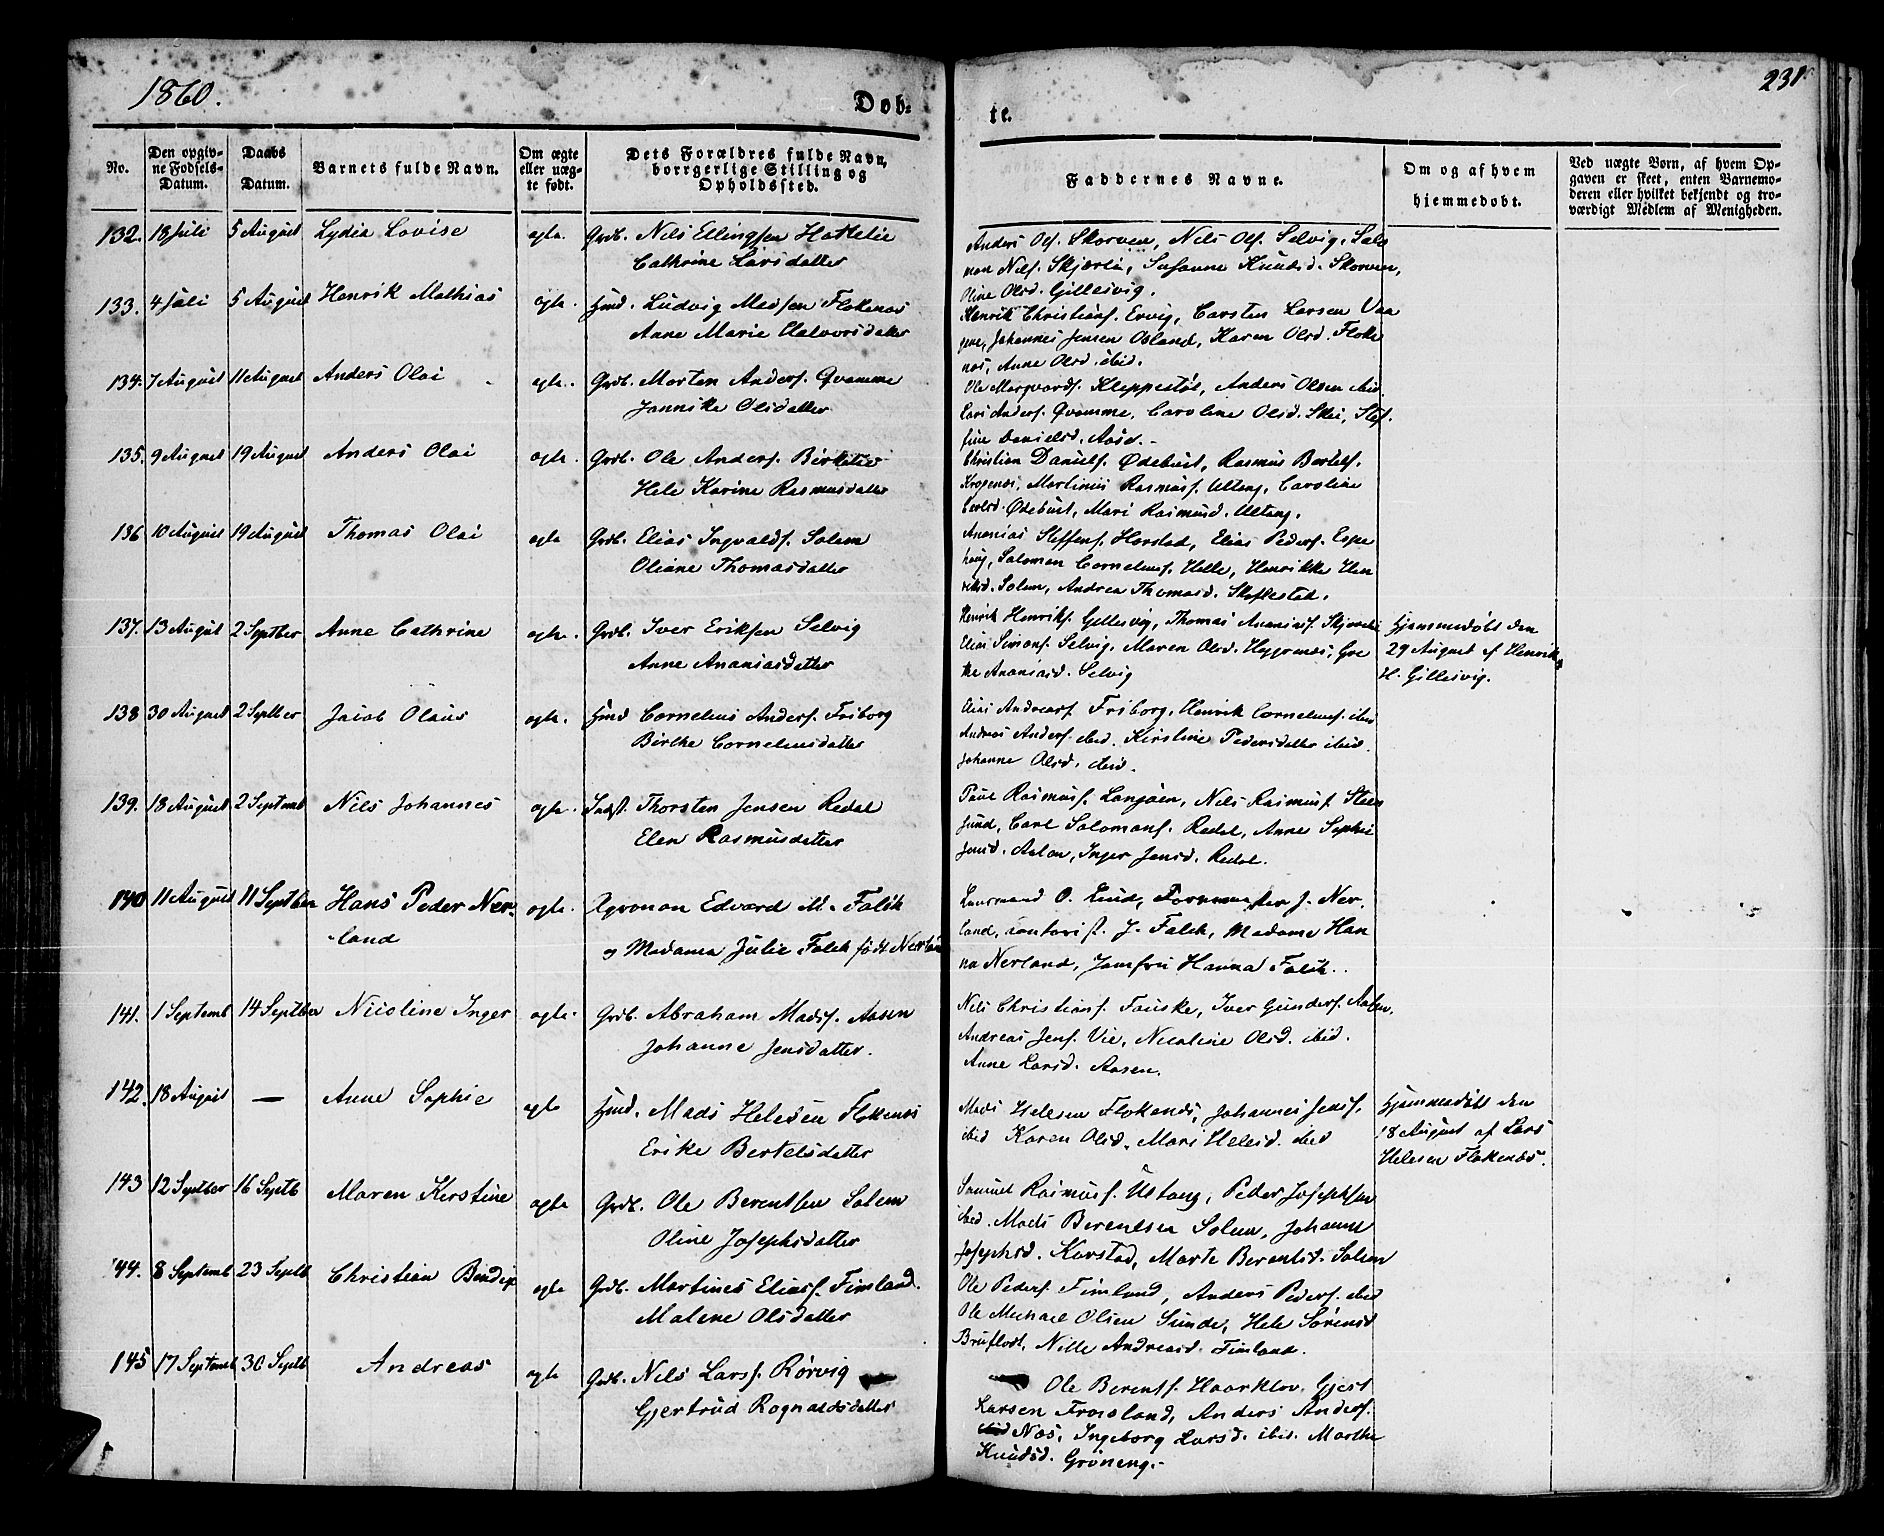 1860.
Døb-
te.
231
No.
Den opgiv-
ne Fødsels-
Datum.
Daabs
Datum.
Barnets fulde Navn.
Om ægte
eller uæg-
te født.
Dets Forældres fulde Navn,
borgerlige Stilling og
Opholdssted.
Faddernes Navne.
Om og af hvem
hjemmedøbt.
Ved uægte Børn, af hvem Op-
gaven er skeet, enten Barnemo-
deren eller hvilket bekjendt og tro-
værdigt Medlem af Menigheden.
132. 18 Juli 5 August Lydia Lovise ægte. Grdb. Nils Ellingsen Hatlelie
Cathrine Larsdatter
Anders Ols. Skorven, Nils Ols. Selvig, Salo
mon Nils. Skjærli, Susanne Knudsd. Skorven,
Oline Olsd. Gillesvig.
133. 4 Juli 5 August Henrik Mathias ægte. Hmd. Ludvig Madsen Flokenæs
Anne Marie Halvorsdatter
Henrik Christians. Ervig, Carsten Larsen Vaa
gene, Johannes Jensen Osland, Karen Olsd. Floke
næs, Anne Olsd. ibid.
134. 7 August 11 August Anders Olai ægte. Grdb. Morten Anders. Qvamme
Jannike Olsdatter
Ole Margvards. Kleppestøl, Anders Olsen ibid
Lars Anders. Qvamme, Caroline Olsd. Skei, Stef-
fine Danielsd. Aase.
135. 9 August 19 August Anders Olai ægte. Grdb. Ole Anders. Birkelie
Hele Karine Rasmusdatter
Christian Daniels. Ødebuit, Rasmus Bertels.
Krogenæs, Martinus Rasmus. Ultang, Caroline
Ødebuit, Mari Rasmusd. Ultang.
136 10 August 19 August Thomas Olai ægte Grdb. Elias Ingvalds. Solem
Oliane Thomasdatter
Ananias Steffens. Horstad, Elias Peders. Espe
houg, Salomon Cornelius. Helle, Henrikke Hen
riksd. Solem, Andrea Thomasd.
137. 13 August 2 Septber Anne Cathrine ægte. Grdb. Iver Eriksen Selvig
Anne Ananiasdatter
Henrik Henriks. Gillesvig, Thomas Ananias. Skjærlie
Elias Simons. Selvig, Maren Olsd. Gre
the Ananiasd. Selvig
Hjemmedøbt den
29 August af Henrik
H. Gillesvig.
138 30 August 2 Septber Jacob Olaus ægte. Hmd Cornelius Anders. Friborg
Birthe Corneliusdatter
Elias Andreas. Friborg, Henrik Cornelius. ibid
Andreas Anders. ibid. Kirstine Pedersdatter ibid.
Johanne Olsd. ibid.
139. 18 August 2 Septemb Nils Johannes ægte. Indst. Thorsten Jensen Redal
Elen Rasmusdatter
Paul Rasmus. Langøen, Nils Rasmus. Steen
sund, Carl Salomons. Redal, Anne Sophie
Jensd. Inger Jensd. Redal.
140 11 August 11 Septber Hans Peder Ner-
land ægte. Agronom Edvard M. Falck
og Madamen Julie Falck født Nerland
Lensmand O. Lind, Forvalter J. Ner-
land, contorist. J. Falck, Madame Han
na Nerland, Jomfru Hanna Falck.
141. 1 Septemb 14 Septber Nicoline Inger ægte. Grdb. Abraham Mads. Aasen
Johanne Jensdatter.
Nils Christians. Fauske, Iver Gunders. Aasen,
Andreas Jens. Vie, Nicoline Olsd. ibid.
Anne Larsd. Aasen.
142. 18 August — Anne Sophie ægte Hmd. Mads Helesen Flokenæs
Erike Bertelsdatter
Mads Helesen Flokenæs, Johannes Jens.
ibid Karen Olsd. Mari Helesd. ibid
Hjemmedøbt den
18 August af Lars
Helesen Flokenæs.
143 12 Septber 16 Septb Maren Kirstine ægte Grdb. Ole Berentsen Solem
Oline Josephsdatter
Samuel Rasmus. Ustang, Peder Josephsen
ibid. Mads Berentsen Solem, Johanne
Josephsd. Korstad, Marte Berentsd. Solem
144. 8 Septemb 23 Septb Christian Bendix ægte Grdb. Martines Elias. Fimland.
Malene Olsdatter
Ole Peders. Fimland, Anders Peders. ibid
Ole Michael Olsen Sunde, Hele Sørensd
Bruflodt, Nille Andreasd. Fimland.
145 17 Septemb 30 Septb Andreas ægte Grdb. Nils Larss. Rørvig
Gjertrud Ragnaldsdatter
Ole Berents. Haarklov, Gjert
Larsen Froisland, Anders Anders.
Næs, Ingeborg Larsd. ibid. Marthe
Knudsd. Grøneng.